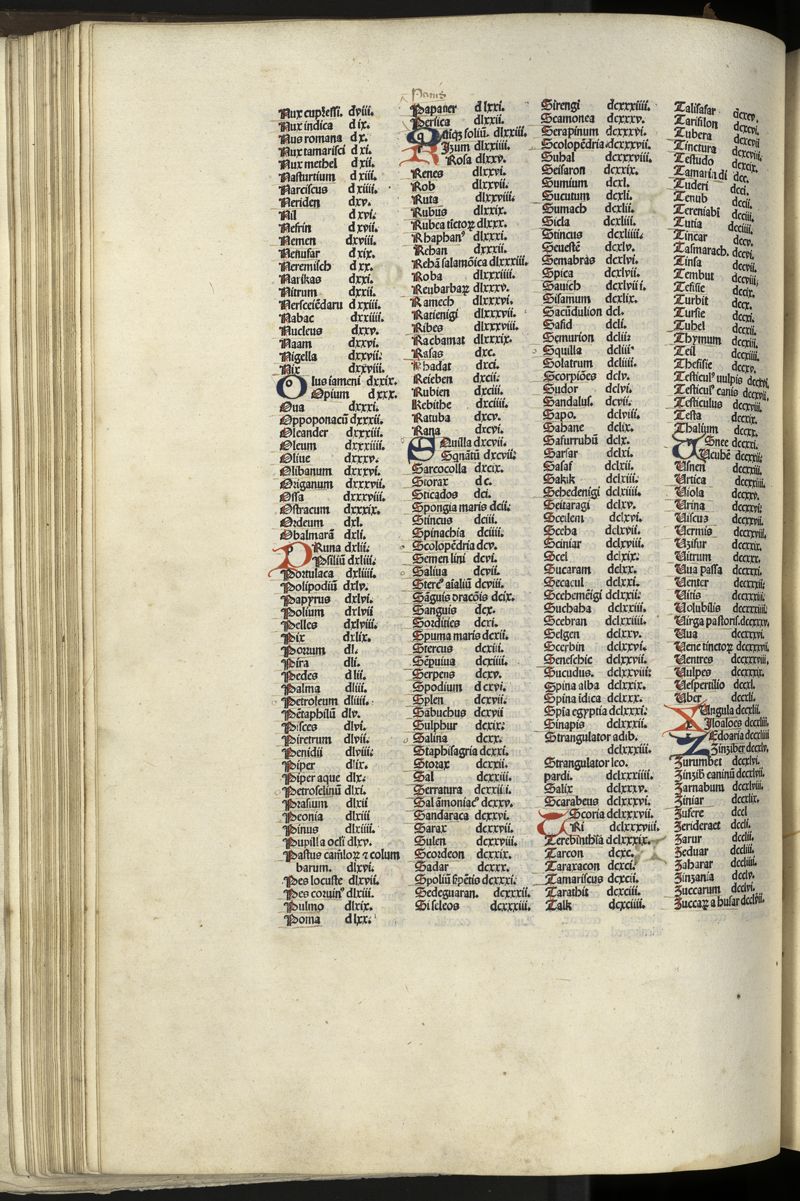 Nux cupressi. dviii.
Nux indica d ix.
Nus romana dx.
Nux tamarisci d xi.
Nux methel d xii.
Nasturtium d xiii.
Narciscus d xiiii.
Neriden dxv.
Nil d xvi.
Nefrin d xvii.
Nemen dxviii.
Nenufar d xix.
Neremisch d xx.
Narikas dxxi.
Nitrum dxxii.
Nersceiēdaru d xxiii.
Nabac dxxiiii.
Nucleus dxxv.
Naam dxxvi.
Nigella dxxvii.
Nix dxxviii.
Olus iameni dxxix.
Opium dxxx.
Oua dxxxi.
Oppoponacū dxxxii.
Oleander dxxxiii.
Oleum dxxxiiii.
Oliue dxxxv.
Olibanum dxxxvi.
Origanum dxxxvii.
Ossa dxxxviii.
Ostracum dxxxix.
Ordeum dxl.
Obalmarā dxli.
PRuna dxlii.
Psiliū dxliii.
Portulaca dxliiii.
Polipodiū dxlv.
Papyrus dxlvi.
Polium dxlvii
Pelles dxlviii.
Pix dxlix.
Porrum dl.
Pira dli.
Pedes d lii.
Palma dliii.
Petroleum dliiii.
Pētaphilū dlv.
Pisces dlvi.
Piretrum dlvii.
Penidii dlviii.
Piper dlix.
Piper aque dlx.
Petroselinū dlxi.
Prasium dlxii
Peonia dlxiii
Pinus dlxiiii.
Pupilla ocĺi dlxv.
Pastus camĺoꝝ ⁊ colum
barum. dlxvi.
Pes locuste dlxvii.
Pes coruinꝰ dlxiii.
Pulmo dlxix.
Poma dlxx.
Papauer d lxxi.
Persica dlxxii.
Qīqꝫ foliū. dlxxiii.
RIzum dlxxiiii.
Rosa dlxxv.
Renes dlxxvi.
Rob dlxxvii.
Ruta dlxxviii.
Rubus dlxxix.
Rubea tīctoꝝ dlxxx.
Rhaphanꝰ dlxxxi.
Rehan dxxxii.
Rehā salamōica dlxxxiii.
Roba dlxxxiiii.
Reubarbaꝝ dlxxxv.
Ramech dlxxxvi.
Ratienigi dlxxxvii.
Ribes dlxxxviii.
Rachamat dlxxxix.
Rasas dxc.
Rhadat dxci.
Reieben dxcii.
Rubien dxciii.
Rebithe dxciiii.
Ratuba dxcv.
Rana dxcvi.
SQuilla dxcvii.
Sqnātū dxcvii.
Sarcocolla dxcix.
Storax d c.
Sticados dci.
Spongia maris dcii.
Stincus dciii.
Spinachia dciiii.
Scolopēdria dcv.
Semen lini dcvi.
Saliua dcvii.
Stercꝰ aīaliū dcviii.
Sāguis dracōis dcix.
Sanguis dcx.
Sordities dcxi.
Spuma maris dcxii.
Stercus dcxiii.
Sēpuiua dcxiiii.
Serpens dcxv.
Spodium d cxvi.
Splen dcxvii.
Sābuchus dcxvii
Sulphur dcxix.
Salina dcxx.
Staphisagria dcxxi.
Storax dcxxii.
Sal dcxxiii.
Serratura dcxxiii.
Sal āmoniacꝰ dcxxv.
Sandaraca dcxxvi.
Sarax dcxxvii.
Sulen dcxxviii.
Scordeon dcxxix.
Sadar dcxxx.
Spoliū serpētis dcxxxi.
Sedeguaran. dcxxxii.
Sisceleos dcxxxiii.
Sirengi dcxxxiiii.
Scamonea dcxxxv.
Serapinum dcxxxvi.
Scolopēdria dcxxxvii.
Suhal dcxxxviii.
Seisaron dcxxix.
Sumium dcxl.
Sucutum dcxli.
Sumach dcxlii.
Sicla dcxliii.
Stincus dcxliiii.
Seuestē dcxlv.
Semabras dcxlvi.
Spica dcxlvii.
Sauich dcxlvii i.
Sisamum dcxlix.
Sacūdulion dcl.
Safid dcli.
Semurion dclii.
Squilla dcliii
Solatrum dcliiii.
Scorpiōes dclv.
Sudor dclvi.
Sandalus. dcvii.
Sapo. dclviii.
Sahane delix.
Safurrubū dclx.
Sarsar dclxi.
Sasaf dclxii.
Sakik dclxiii.
Sehedenigi dclxiiii.
Seitaragi dclxv.
Sceileni dclxvi.
Seeha dclxvii.
Sciniar dclxviii.
Scel dclxix.
Sucaram dclxx.
Secacul dclxxi.
Secbemēigi dclxxii.
Suchaha dclxxiii.
Scebran dclxxiiii.
Selgen dclxxv.
Scerbin dclxxvi.
Senefchic dclxxvii.
Sucudus. dclxxviii.
Spina alba dclxxix.
Spina īdica dclxxx.
Spīa egyptia dclxxxi.
Sinapis dclxxxii.
Strangulator adib.
dclxxxiii.
Strangulator leo.
pardi. dclxxxiiii.
Salix dclxxxv.
Scarabeus dclxxxvi.
TScoria dclxxxvii.
Ri dclxxxviii.
Terebīthīa dclxxxix.
Tarcon dcxc.
Taraxacon dcxci.
Tamariscus dcxcii.
Tarathit dcxciii.
Talk dcxciiii.
Talisafar dcxcv.
Tarifilon dcxcvi.
Tubera dcxcvii
Tinctura dcxcviii.
Testudo dcxcix.
Tamarīdi dcc.
Tuderi dcci.
Tenub dccii.
Tereniabī dcciii.
Tutia dcciiii.
Tincar dccv.
Tasmarach. dccvi.
Tinsa dccvii.
Tembut dccviii.
Tefisie dccix.
Turbit dccx.
Tursie dccxi.
Tuhel dccxii.
Thymum dccxiii.
Teil dccxiiii.
Thefisie dccxv.
Testiculꝰ vulpis dccxvi.
Testiculꝰ canis dccxvii.
Testiculus dccxviii.
Testa dccxix.
Thalium dccxx.
VSnee dccxxi.
Vcubē dccxxii.
Vsnen dccxxiii.
Vrtica dccxxiiii.
Viola dccxxv.
Vrina dccxxvi.
Viscus dccxxvii.
Vermis dccxxviii.
Vzifur dccxxix.
Vitrum dccxxx.
Vua passa dccxxxi.
Venter dccxxxii.
Vitis dccxxxiii.
Volubilis dccxxxiiii.
Virga pastoris. dccxxxv.
Vua dccxxxvi.
Vene tinctoꝝ dccxxxvii.
Ventres dccxxxviii.
Vulpes dccxxxix.
Vespertilio dccxl.
Vber dccxli.
XVngula dccxlii.
Xiloaloes dccxliii.
ZEdoaria dccxliiii
Zinziber dccxlv.
Zurumbet dccxlvi.
Zinzib caninū dccxlvii.
Zarnabum dccxlviii.
Ziniar dccxlix.
Zufere dccl
Zerideraet dccli.
Zarur dcclii.
Zeduar dccliii.
Zaharar dccliiii.
Zinzania dcclv.
Zuccarum dcclvi.
Zuccaꝝ a husar dcclvii.